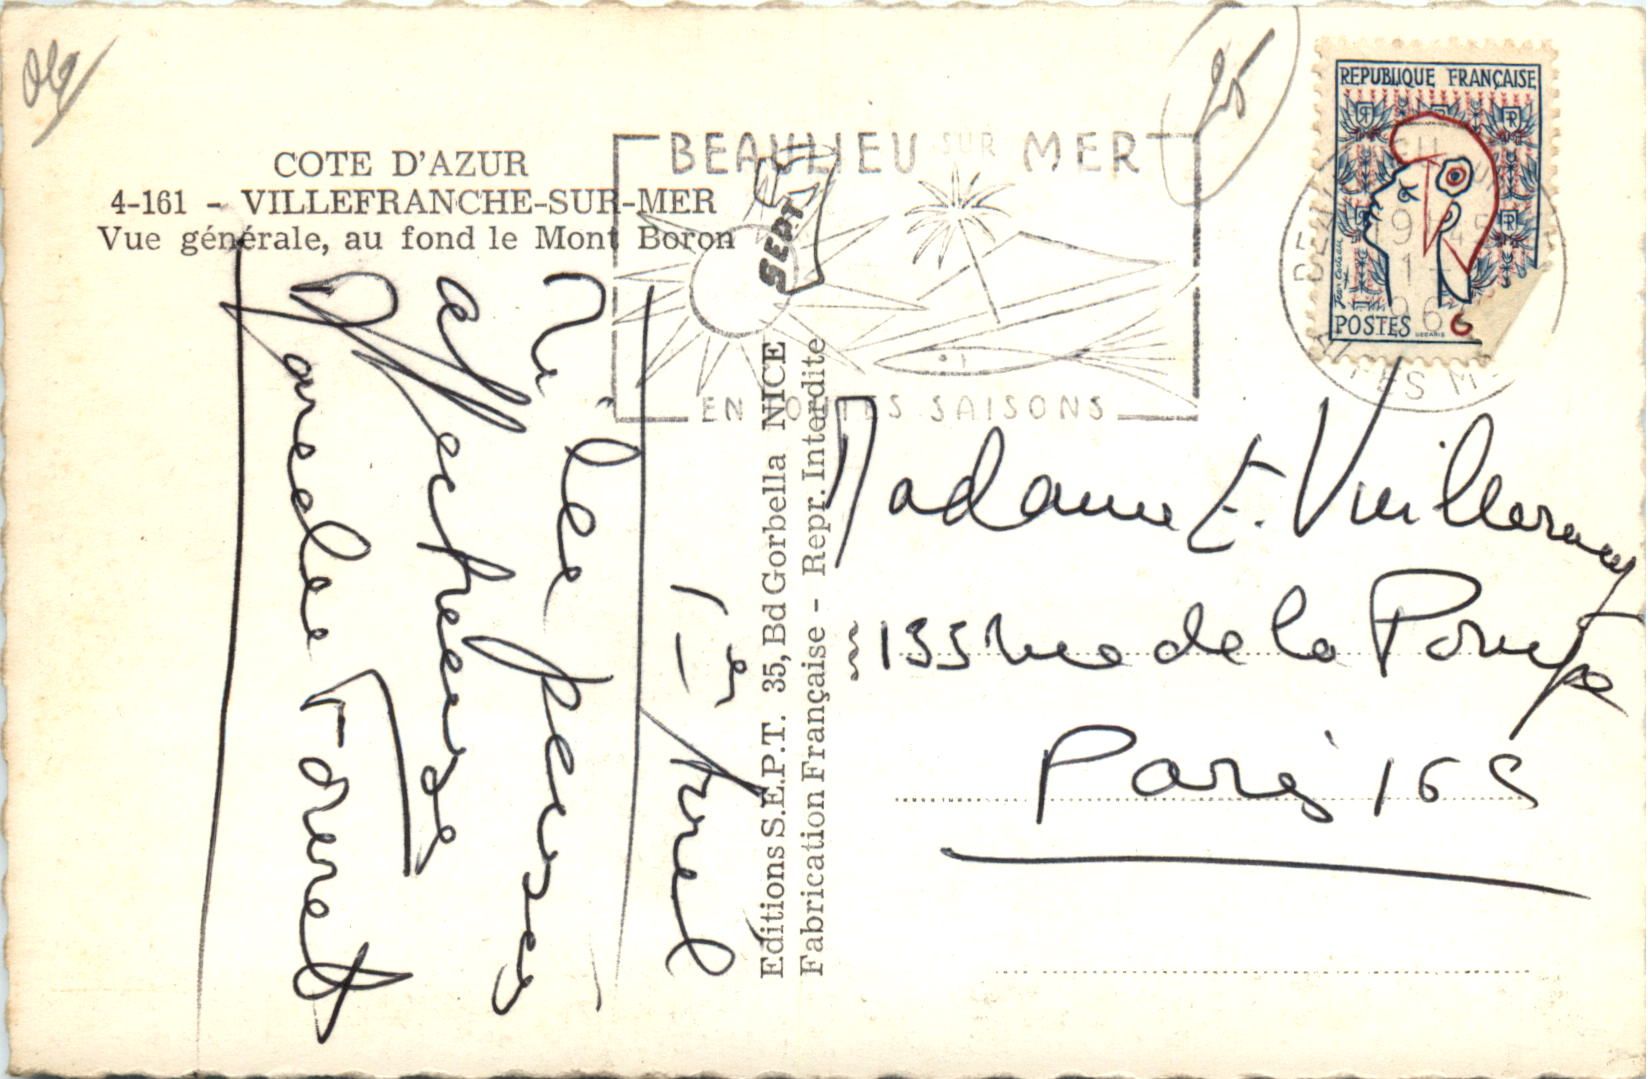 COTE D'AZUR
4-161 - VILLEFRANCHE-SUR-MER
Vue générale, au fond le Mont Boron
BEAULIEU SUR MER
EN TOUTES SAISONS
25
REPUBLIQUE FRANÇAISE
POSTES
19 H 45
SEPT
Editions S.E.P.T. 35, Bd Gorbella NICE
Fabrication Française - Repr. Interdite
1er Avril
Mille pensées
affectueuses
Forest
Madame E. Vuillermoz
133 rue de la Pompe
Paris 16e